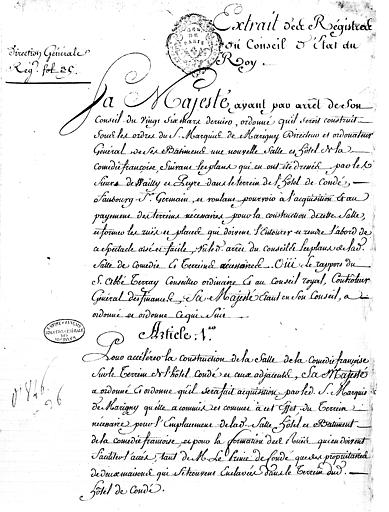 Extrait des Registres
du Conseil d'Etat du
Roy.
Direction Générale
Reg. fol. 35.
Sa Majesté ayant par arrêt de son
Conseil du Vingt Six mars dernier, ordonné qu'il seroit construit
sous les ordres du S. Marquis de Marigny Directeur et ordonnateur
Général de ses Batimens une nouvelle Salle et hôtel de la
Comédie françoise suivant les plans qui en ont été dressés par les
Sieurs de Wailly et Peyre dans le terrein de l'hôtel de Condé,
faubourg St. Germain, et voulant pourvoir à l'acquisition & au
payement des terreins nécessaires pour la construction de cette Salle,
et former les rues et places qui doivent l'entourer et rendre l'abord de
ce spectacle aisé et facile, vu led. arrêt du conseil les plans de lad.
Salle de Comédie & terreins nécessaires. Oüi le rapport du
S. Abbé Terray Conseiller ordinaire & au Conseil royal, Controleur
Général des finances, Sa Majesté étant en son Conseil, a
ordonné et ordonne ce qui suit
Article 1er
Pour accélérer la construction de la Salle de la Comédie françoise
sur le Terrein de l'hôtel Condé et eaux adjacentes, Sa Majesté
a ordonné & ordonne qu'il sera fait acquisition par led. S. Marquis
de Marigny qu'elle a commis et commet à cet Effet, du Terrein
nécessaire pour l'Emplacement de lad. Salle hôtel et Batiment
de la comédie françoise, et pour la formation des Rues qui en doivent
faciliter l'accès, tant de M. Le Prince de Condé que des propriétaires
de deux maisons qui se trouvent Enclavées dans le Terrein dud.
hôtel de Condé.